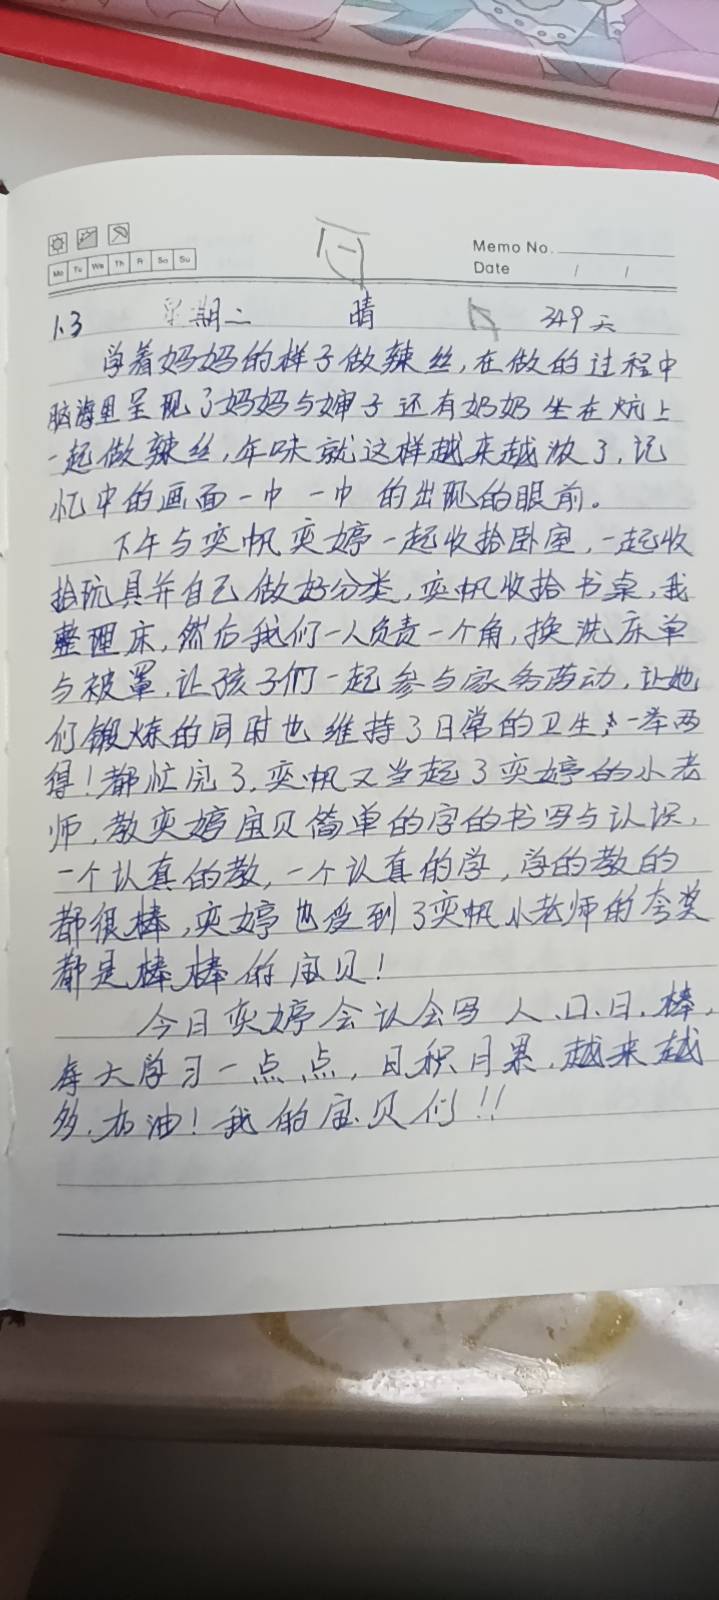 Memo No.
Mo Tu We Th Fr Sa Su
Date / /
1.3 星期二 晴 349天
学着妈妈的样子做辣丝,在做的过程中
脑海里呈现了妈妈与婶子还有奶奶坐在炕上
一起做辣丝,年味就这样越来越浓了,记
忆中的画面一巾一巾的出现的眼前。
下午与奕帆奕婷一起收拾卧室,一起收
拾玩具并自己做好分类,奕帆收拾书桌,我
整理床,然后我们一人负责一个角,换洗床单
与被罩,让孩子们一起参与家务劳动,让她
们锻炼的同时也维持了日常的卫生,一举两
得!都忙完了,奕帆又当起了奕婷的小老
师,教奕婷宝贝简单的字的书写与认识,
一个认真的教,一个认真的学,学的教的
都很棒,奕婷也受到了奕帆小老师的夸奖
都是棒棒的宝贝!
今日奕婷会认会写人、口、日,棒,
每天学习一点点,日积月累,越来越
多,加油!我的宝贝们!!